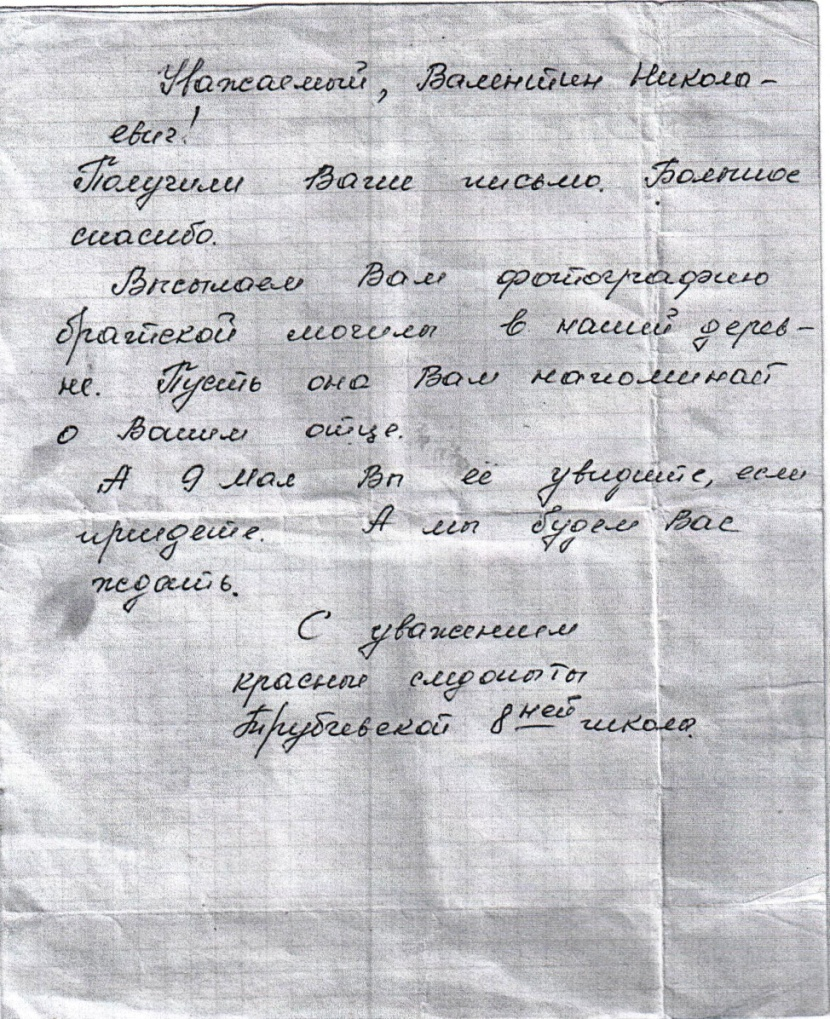 Уважаемый, Валентин Никола-
евич!
Получили Ваше письмо. Большое
спасибо.
Высылаем Вам фотографию
братской могилы в нашей дерев-
не. Пусть она Вам напоминает
о Вашем отце.
А 9 Мая Вы её увидите, если
приедете. А мы будем Вас
ждать.
С уважением
красные следопыты
Трубчевской 8ней школы.